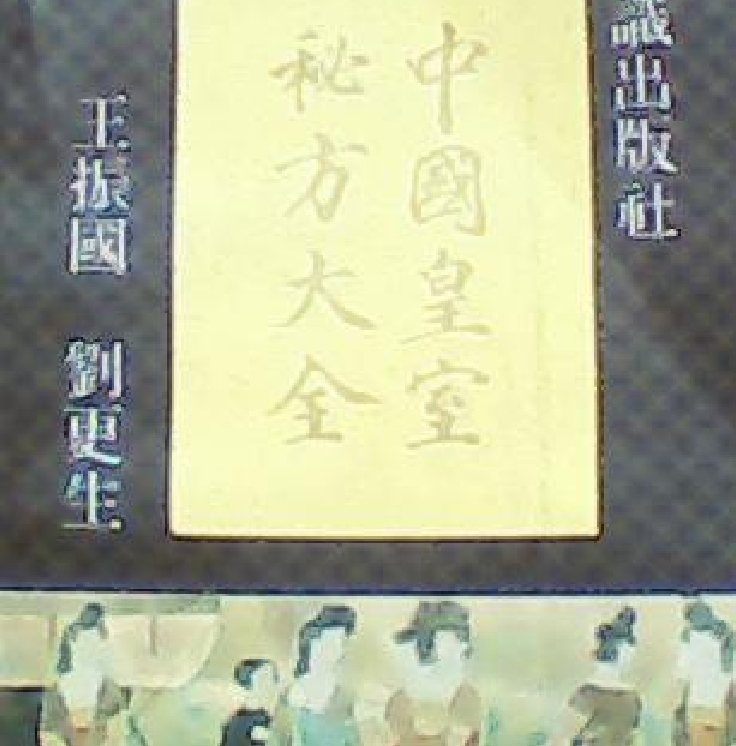 識出版社
中國皇室
秘方大全
王振國 劉更生